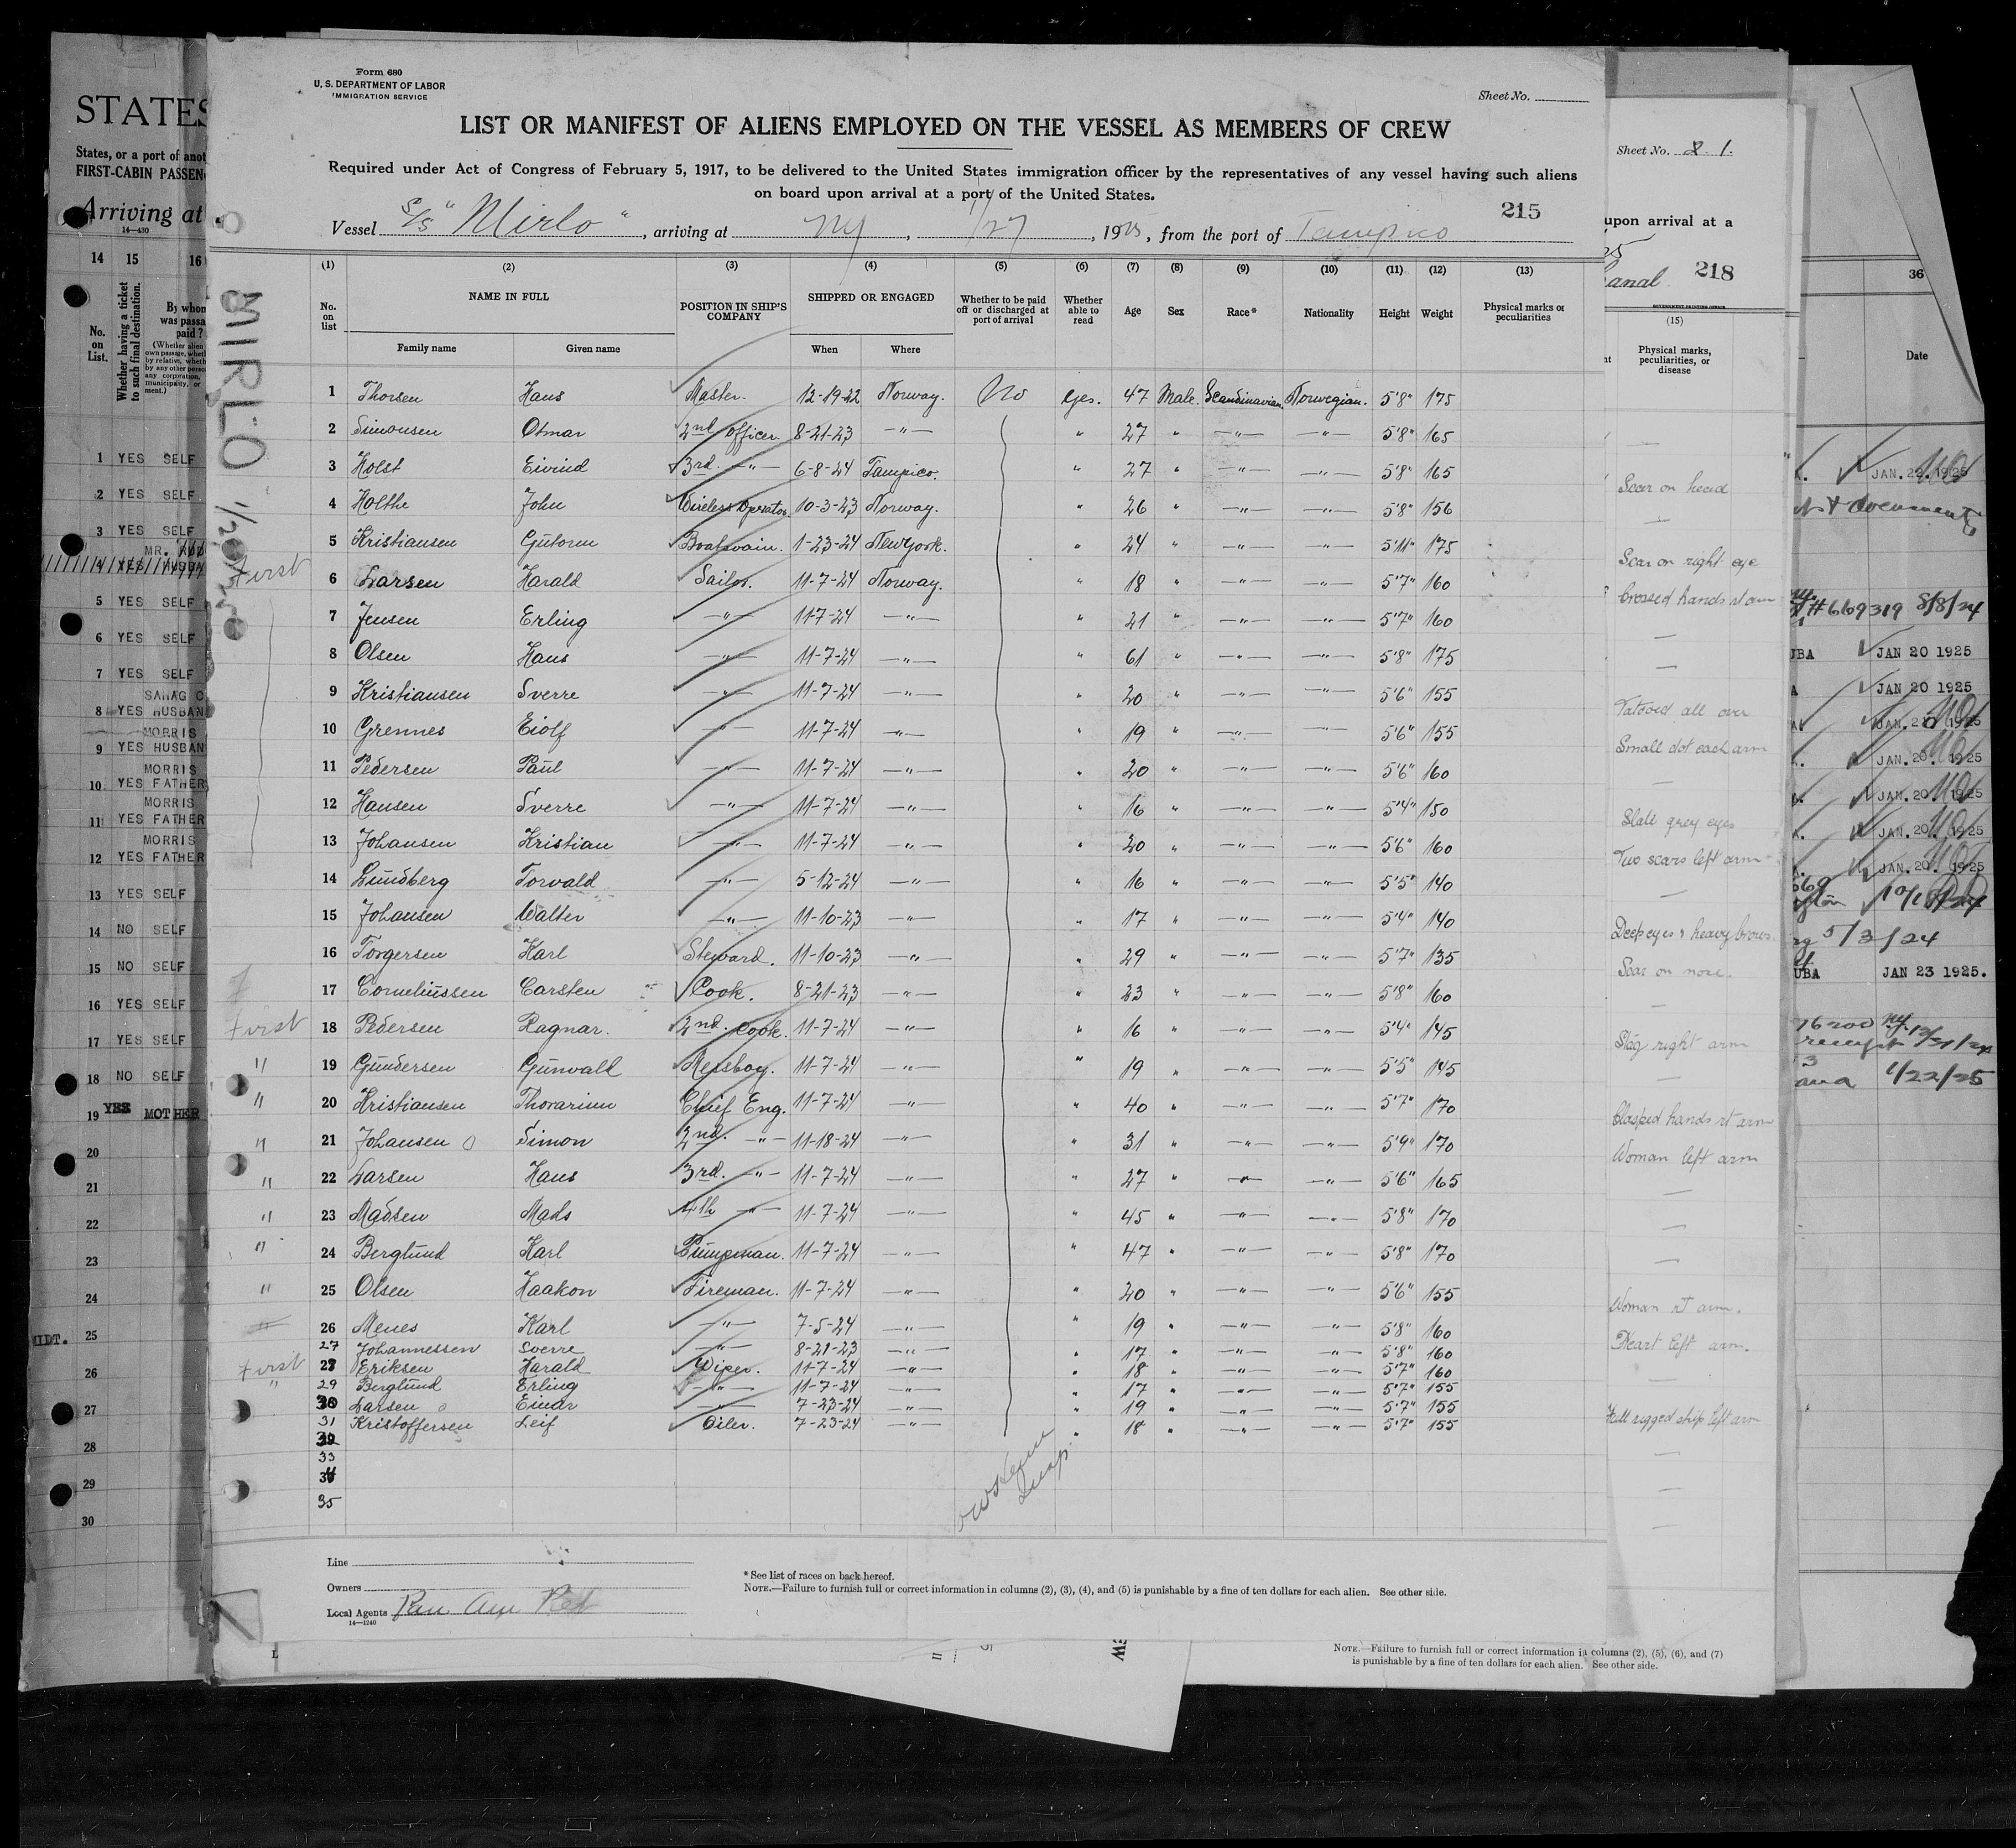 Form 680
U. S. DEPARTMENT OF LABOR
IMMIGRATION SERVICE
Sheet No.
LIST OR MANIFEST OF ALIENS EMPLOYED ON THE VESSEL AS MEMBERS OF CREW
Required under Act of Congress of February 5, 1917, to be delivered to the United States immigration officer by the representatives of any vessel having such aliens
on board upon arrival at a port of the United States.
215
Vessel S/S "Mirlo", arriving at NY, 1/27, 1925, from the port of Tampico
(1) (2) (3) (4) (5) (6) (7) (8) (9) (10) (11) (12) (13)
No. on list NAME IN FULL POSITION IN SHIP'S COMPANY SHIPPED OR ENGAGED Whether to be paid off or discharged at port of arrival Whether able to read Age Sex Race* Nationality Height Weight Physical marks or peculiarities
Family name Given name When Where
1 Thorsen Hans Master. 12-19-22 Norway. No Yes. 47 Male. Scandinavian. Norwegian. 5'8" 175
2 Simonsen Otmar 2nd officer. 8-21-23 —"— " 27 " —"— —"— 5'8" 165
3 Holst Eivind 3rd. —"— 6-8-24 Tampico. " 27 " —"— —"— 5'8" 165
4 Holthe John Wireless Operator. 10-3-23 Norway. " 26 " —"— —"— 5'8" 156
5 Kristiansen Gutorm Boatswain. 1-23-24 New York. " 24 " —"— —"— 5'11" 175
First 6 Larsen Harald Sailor. 11-7-24 Norway. " 18 " —"— —"— 5'7" 160
7 Jensen Erling —"— 11-7-24 —"— " 21 " —"— —"— 5'7" 160
8 Olsen Hans —"— 11-7-24 —"— " 61 " —"— —"— 5'8" 175
9 Kristiansen Sverre —"— 11-7-24 —"— " 20 " —"— —"— 5'6" 155
10 Grennes Eiolf —"— 11-7-24 —"— " 19 " —"— —"— 5'6" 155
11 Pedersen Paul —"— 11-7-24 —"— " 20 " —"— —"— 5'6" 160
12 Hansen Sverre —"— 11-7-24 —"— " 16 " —"— —"— 5'4" 150
13 Johansen Kristian —"— 11-7-24 —"— " 20 " —"— —"— 5'6" 160
14 Lundberg Torvald —"— 5-12-24 —"— " 16 " —"— —"— 5'5" 140
15 Johansen Walter —"— 11-10-23 —"— " 17 " —"— —"— 5'4" 140
16 Torgersen Karl Steward. 11-10-23 —"— " 29 " —"— —"— 5'7" 135
17 Corneliussen Carsten Cook. 8-21-23 —"— " 23 " —"— —"— 5'8" 160
First 18 Pedersen Ragnar. 2nd. Cook. 11-7-24 —"— " 16 " —"— —"— 5'4" 145
" 19 Gundersen Gunvald Messboy. 11-7-24 —"— " 19 " —"— —"— 5'5" 145
" 20 Kristiansen Thorarinn Chief Eng. 11-7-24 —"— " 40 " —"— —"— 5'7" 170
" 21 Johansen O Simon 2nd. —"— 11-18-24 —"— " 31 " —"— —"— 5'9" 170
" 22 Larsen Hans 3rd. —"— 11-7-24 —"— " 27 " —"— —"— 5'6" 165
" 23 Madsen Mads 4th —"— 11-7-24 —"— " 45 " —"— —"— 5'8" 170
" 24 Berglund Karl Pumpman. 11-7-24 —"— " 47 " —"— —"— 5'8" 170
" 25 Olsen Haakon Fireman. 11-7-24 —"— " 20 " —"— —"— 5'6" 155
26 Menes Karl —"— 7-5-24 —"— " 19 " —"— —"— 5'8" 160
27 Johannessen Sverre —"— 8-21-23 —"— " 17 " —"— —"— 5'8" 160
First 28 Eriksen Harald Wiper. 11-7-24 —"— " 18 " —"— —"— 5'7" 160
" 29 Berglund Erling —"— 11-7-24 —"— " 17 " —"— —"— 5'7" 155
30 Larsen Einar —"— 7-23-24 —"— " 19 " —"— —"— 5'7" 155
31 Kristoffersen Leif Oiler. 7-23-24 —"— " 18 " —"— —"— 5'7" 155
32
33
34
35
Line
Owners
Local Agents Pan Am Pet
14—1240
*See list of races on back hereof.
NOTE.—Failure to furnish full or correct information in columns (2), (3), (4), and (5) is punishable by a fine of ten dollars for each alien. See other side.
MIRLO
STATES
States, or a port of
FIRST-CABIN
Arriving at
14—430
14 15 16
No. on List.
Whether having a ticket to such final destination.
By whom was paid?
1 YES SELF
2 YES SELF
3 YES SELF
5 YES SELF
6 YES SELF
7 YES SELF
8 YES
MORRIS
9 YES
MORRIS
10 YES FATHER
MORRIS
11 YES FATHER
MORRIS
12 YES FATHER
13 YES SELF
14 NO SELF
15 NO SELF
16 YES SELF
17 YES SELF
18 NO SELF
19 YES MOTHER
20
21
22
23
24
25
26
27
28
29
30
Sheet No. 1.
upon arrival at a
218
(15)
Physical marks, peculiarities, or disease
Scar on head
Scar on right eye
Crossed hands rt arm
Tatooed all over
Small dot each arm
Slate grey eyes
Two scars left arm
Deep eyes & heavy brows.
Scar on nose.
Flag right arm
Clasped hands rt arm
Woman left arm
Woman rt arm.
Heart left arm.
Full rigged ship left arm
NOTE.—Failure to furnish full or correct information in columns (2), (5), (6), and (7)
is punishable by a fine of ten dollars for each alien. See other side.
36
Date
JAN. 22. 1925
#669319 8/8/24
JAN 20 1925
JAN 20 1925
JAN. 20. 1925
JAN. 20. 1925
JAN. 20. 1925
JAN. 20. 1925
5/3/24
JAN 23 1925.
1/22/25